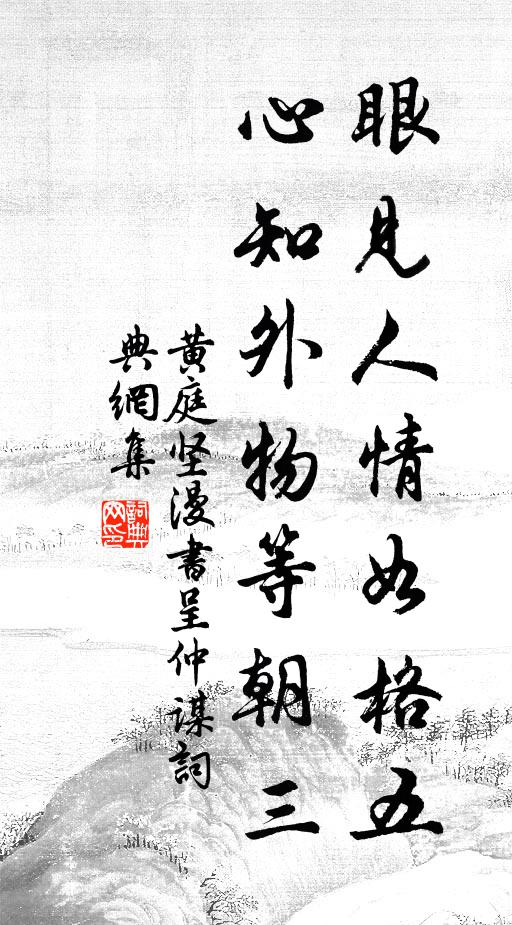 眼見人情如格五
心知外物等朝三
黄庭坚漫書呈仲谋詞
典網集
詞典
网印